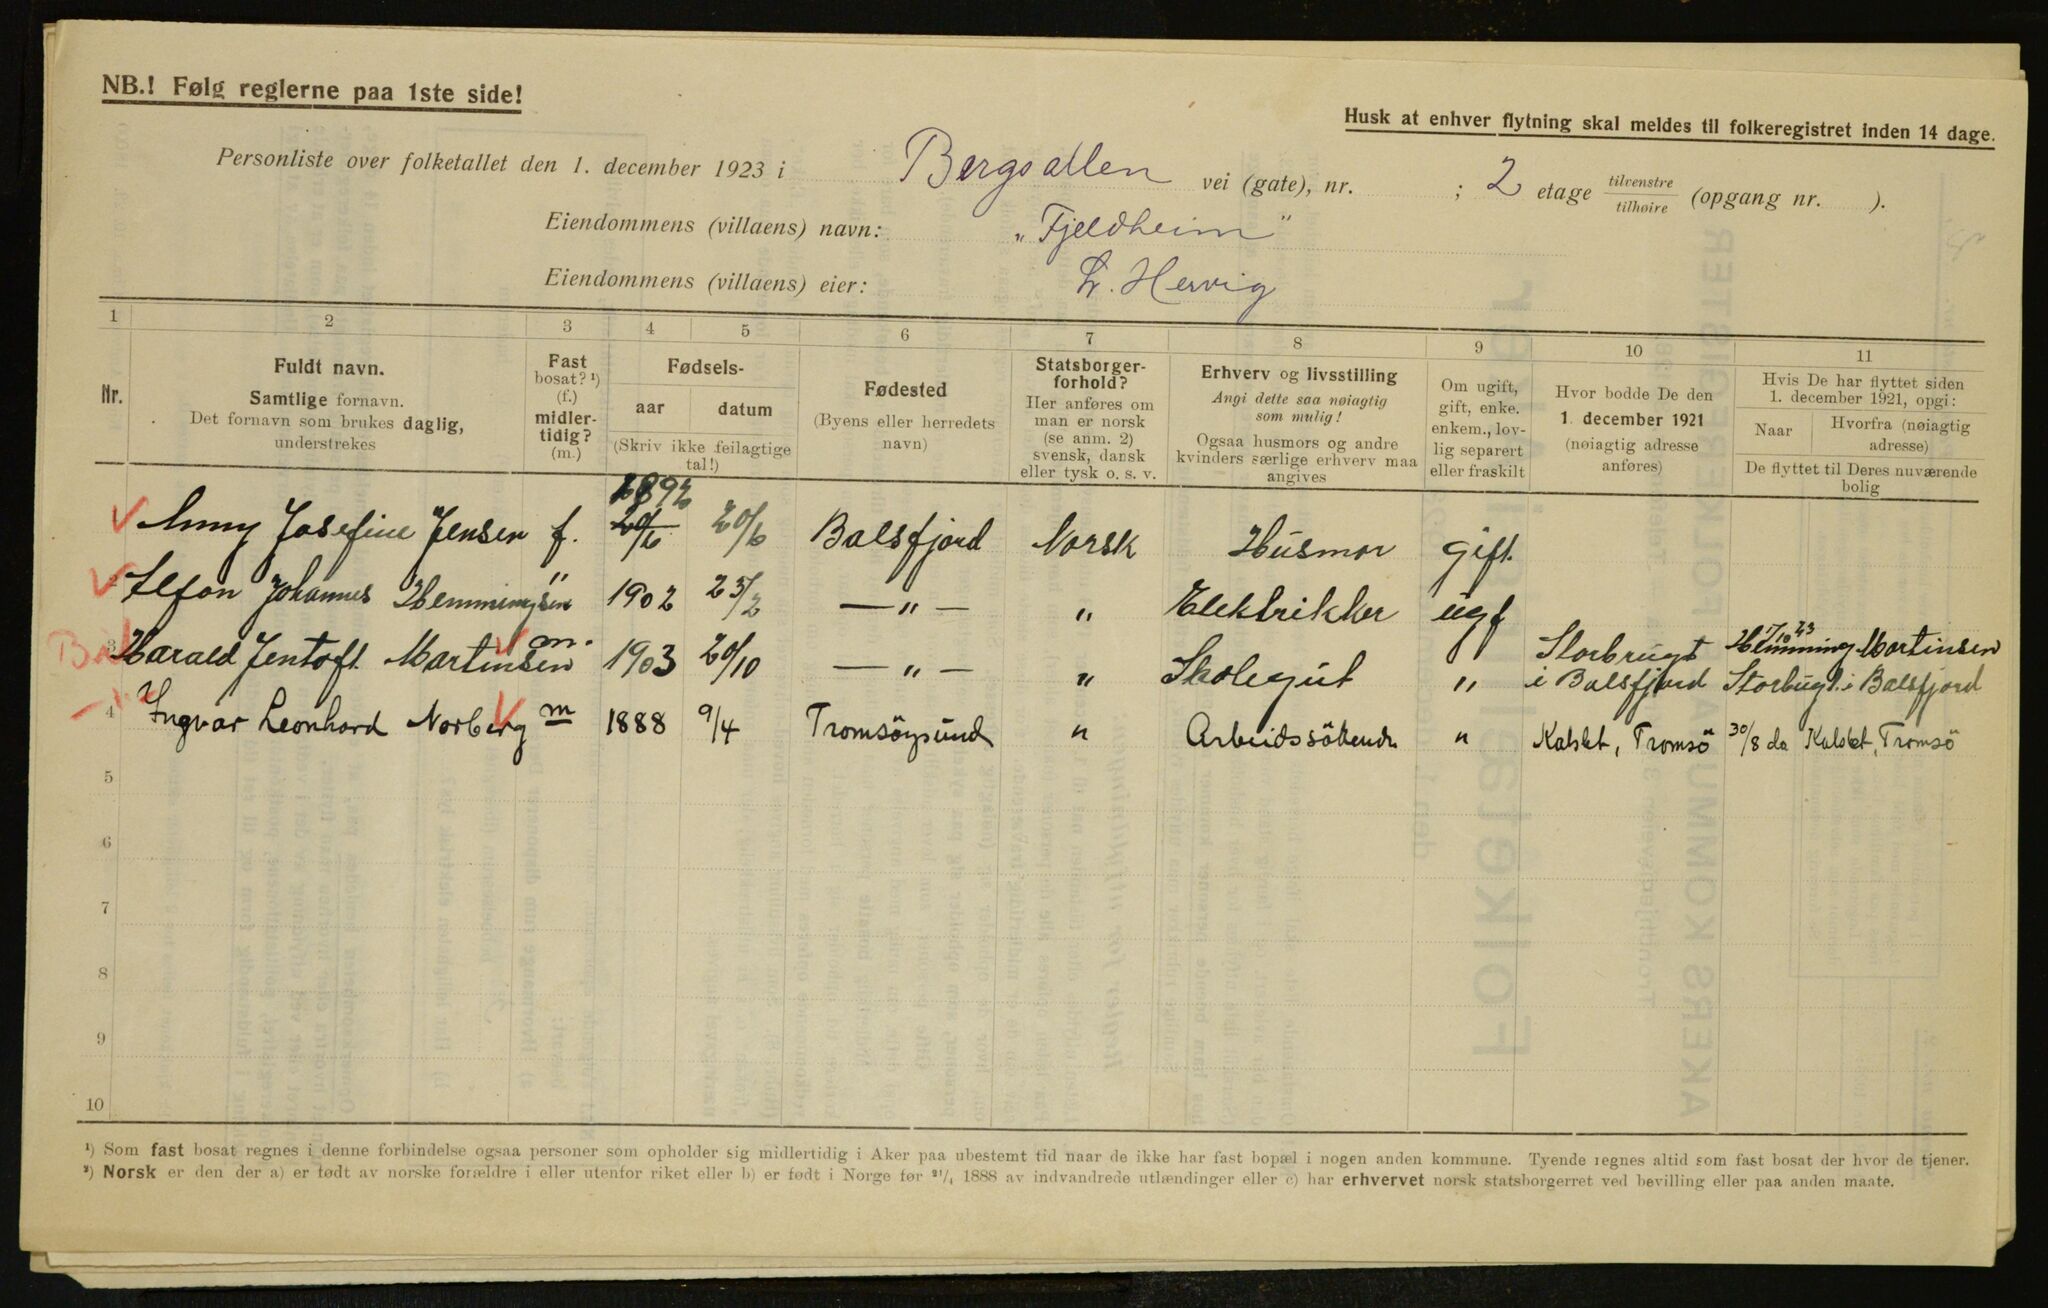 NB.! Følg reglerne paa 1ste side!
Husk at enhver flytning skal meldes til folkeregistret inden 14 dage.
Personliste over folketallet den 1. december 1923 i Bergsallen vei (gate), nr. ; 2 etage tilvenstre tilhøire (opgang nr. ).
Eiendommens (villaens) navn: „Fjeldheim"
Eiendommens (villaens) eier: L. Hervig
1 2 3 4 5 6 7 8 9 10 11
Nr.
Fuldt navn.
Samtlige fornavn.
Det fornavn som brukes daglig,
understrekes
Fast
bosat? ¹)
(f.)
midler-
tidig?
(m.)
Fødsels-
aar datum
(Skriv ikke feilagtige
tal!)
Fødested
(Byens eller herredets
navn)
Statsborger-
forhold?
Her anføres om
man er norsk
(se anm. 2)
svensk, dansk
eller tysk o. s. v.
Erhverv og livsstilling
Angi dette saa nøiagtig
som mulig!
Ogsaa husmors og andre
kvinders særlige erhverv maa
angives
Om ugift,
gift, enke.
enkem., lov-
lig separert
eller fraskilt
Hvor bodde De den
1. december 1921
(nøiagtig adresse
anføres)
Hvis De har flyttet siden
1. december 1921, opgi:
Naar Hvorfra (nøiagtig
adresse)
De flyttet til Deres nuværende
bolig
1892
Anny Josefine Jensen f. 20/6 20/6 Balsfjord Norsk Husmor gift.
Alfon Johannes Hemmingsen " 1902 23/2 —"— " Elektrikker ugf
3 Harald Jentoft Martinsen m. 1903 20/10 —"— " Skolegut " Storbrugt i Balsfjord 17/10 23 Hemming Martinsen Storbugt i Balsfjord
4 Ingvar Leonhard Norberg m 1888 9/4 Tromsöysund " Arbeidssökende " Kalslet, Tromsö 30/8 da Kalslet, Tromsö
5
6
7
8
9
10
¹) Som fast bosat regnes i denne forbindelse ogsaa personer som opholder sig midlertidig i Aker paa ubestemt tid naar de ikke har fast bopæl i nogen anden kommune. Tyende regnes altid som fast bosat der hvor de tjener.
²) Norsk er den der a) er født av norske forældre i eller utenfor riket eller b) er født i Norge før ²¹/₄ 1888 av indvandrede utlændinger eller c) har erhvervet norsk statsborgerret ved bevilling eller paa anden maate.